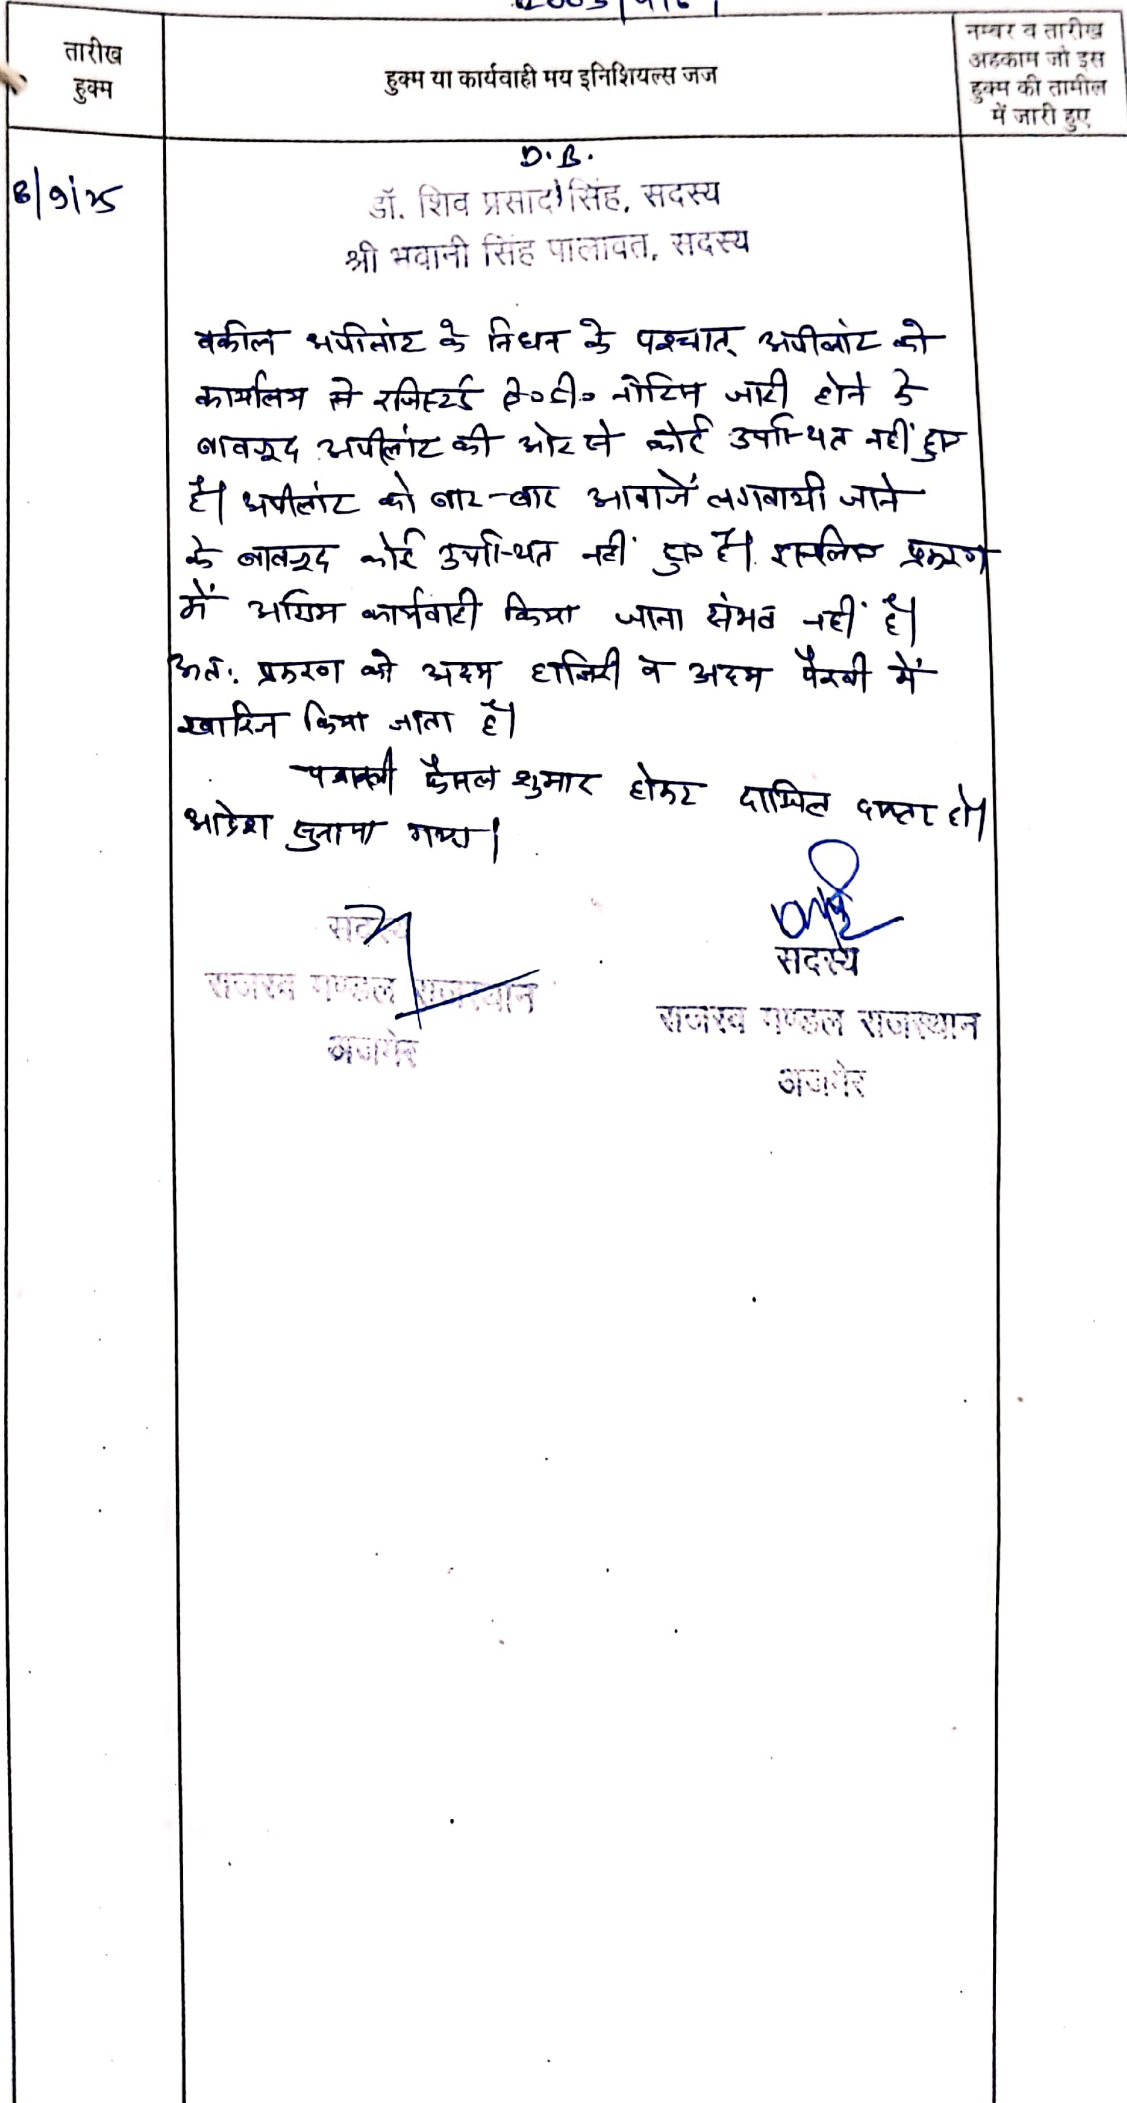 तारीख
हुक्म
हुक्म या कार्यवाही मय इनिशियल्स जज
नम्बर व तारीख
अहकाम जो इस
हुक्म की तामील
में जारी हुए
8/9/25
D.B.
डॉ. शिव प्रसाद सिंह, सदस्य
श्री भवानी सिंह पालावत, सदस्य
वकील अपीलांट के निधन के पश्चात् अपीलांट को
कार्यालय से रजिस्टर्ड ए०डी० नोटिस जारी होने के
बावजूद अपीलांट की ओर से कोई उपस्थित नहीं हुए
है। अपीलांट को बार-बार आवाजें लगवायी जाने
के बावजूद कोई उपस्थित नहीं हुए है। इसलिए प्रकरण
में अग्रिम कार्यवाही किया जाना संभव नहीं है।
अत: प्रकरण को अदम हाजिरी व अदम पैरवी में
खारिज किया जाता है।
पत्रावली फैसल शुमार होकर दाखिल दफ्तर हो।
आदेश सुनाया गया।
सदस्य
राजस्व मण्डल राजस्थान
अजमेर
सदस्य
राजस्व मण्डल राजस्थान
अजमेर